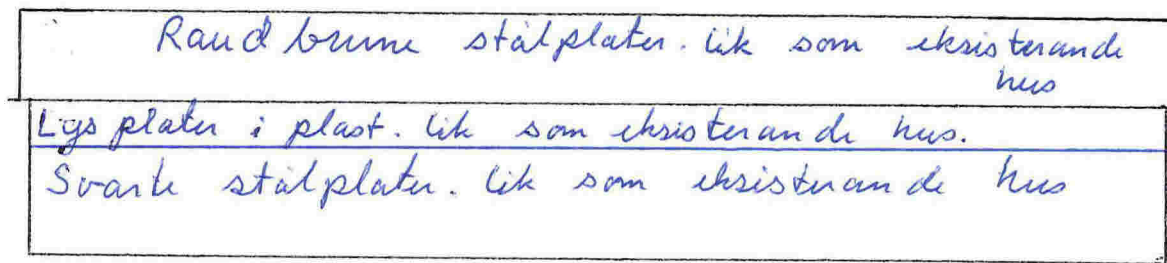 Raud brune stålplater. lik som eksisterande
hus
Lys plater i plast. lik som eksisterande hus.
Svarte stålplater. lik som eksisterande hus